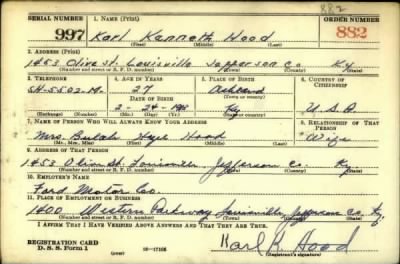 882
SERIAL NUMBER 1. NAME (Print) ORDER NUMBER
997 Karl Kenneth Hood 882
(First) (Middle) (Last)
2. ADDRESS (Print)
1453 Olive St. Louisville Jefferson Co. Ky
(Number and street or R. F. D. number) (Town) (County) (State)
3. TELEPHONE 4. AGE IN YEARS 5. PLACE OF BIRTH 6. COUNTRY OF CITIZENSHIP
SH-5502-M. 27 Ashland
DATE OF BIRTH (Town or county)
2- Ky U.S.A
(Exchange) (Number) (Mo.) (Day) (Yr.) (State or country)
7. NAME OF PERSON WHO WILL ALWAYS KNOW YOUR ADDRESS 8. RELATIONSHIP OF THAT PERSON
Mrs. Bulah Faye Hood Wife
(Mr., Mrs., Miss) (First) (Middle) (Last)
9. ADDRESS OF THAT PERSON
1453 Olive St. Louisville Jefferson Co. Ky
(Number and street or R. F. D. number) (Town) (County) (State)
10. EMPLOYER'S NAME
Ford Motor Co.
11. PLACE OF EMPLOYMENT OR BUSINESS
1400 Western Parkway Louisville Jefferson Co. Ky.
(Number and street or R. F. D. number) (Town) (County) (State)
I AFFIRM THAT I HAVE VERIFIED ABOVE ANSWERS AND THAT THEY ARE TRUE.
REGISTRATION CARD
D. S. S. Form 1 (over) 16-17105 Karl K. Hood
(Registrant's signature)